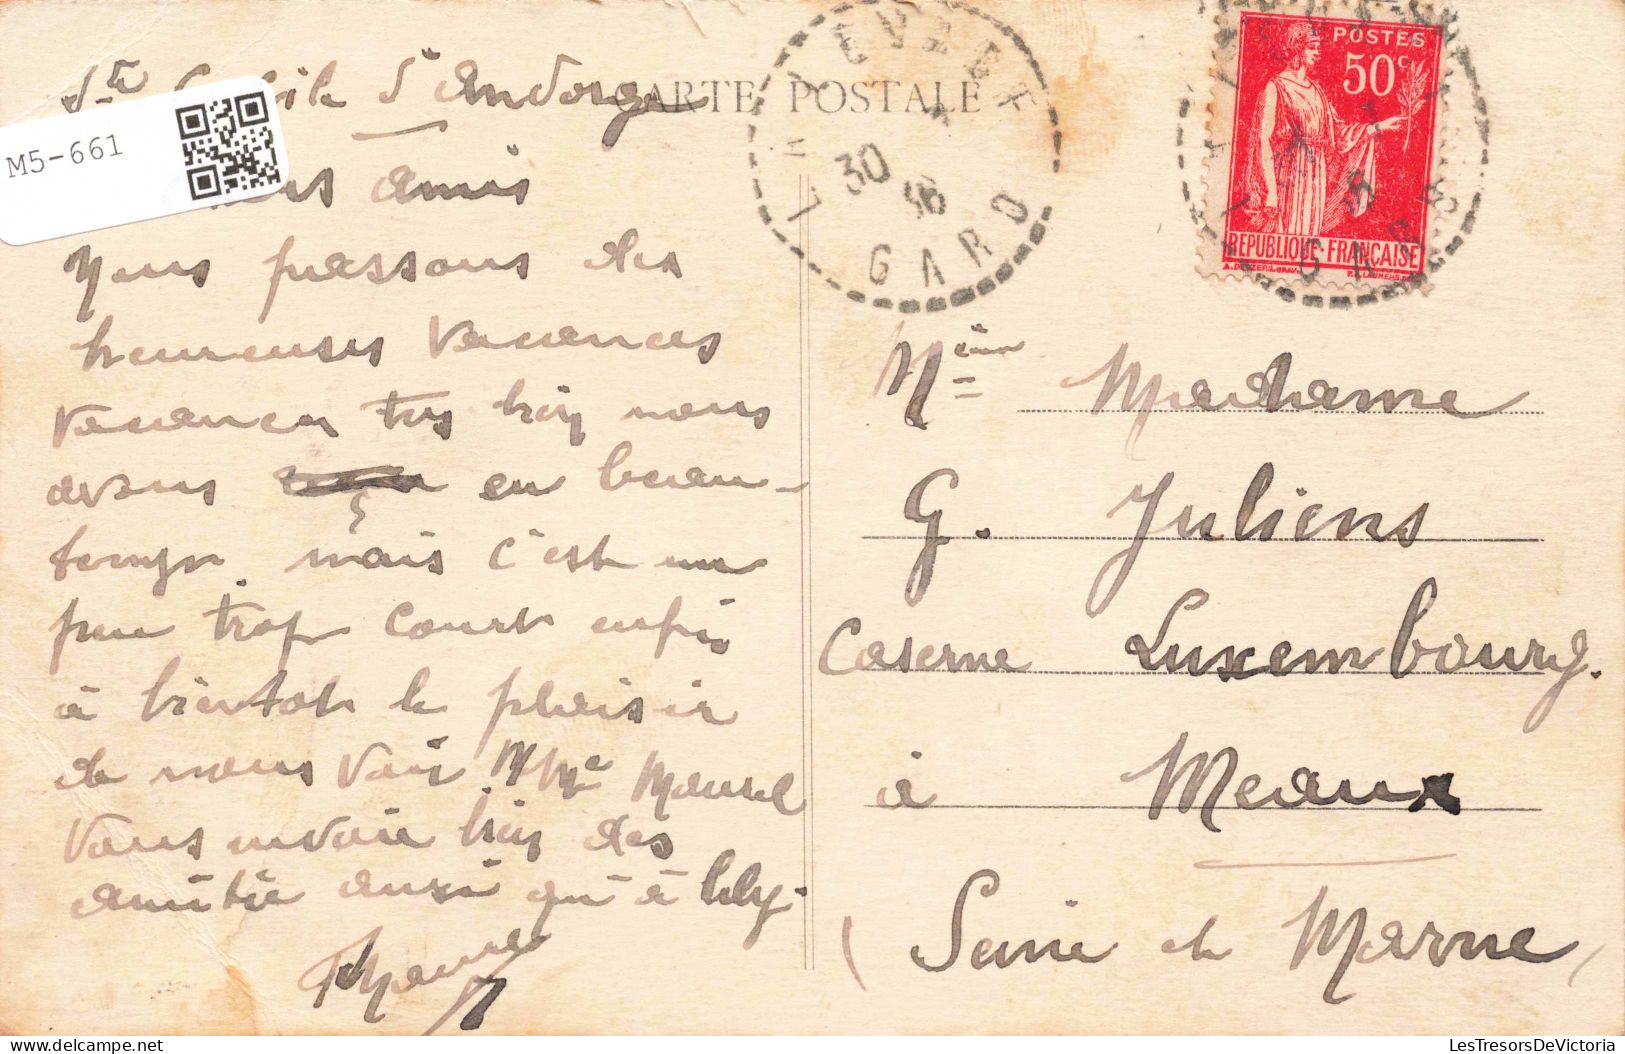 Ste Cécile d'Andorge
CARTE POSTALE
M5-661
amis
Nous passons des
heureuses vacances
vacances très bien nous
avons en beau-
temps mais c'est un
peu trop court enfin
à bientôt le plaisir
de nous voir Mme Maurel
vous envoie bien des
amitié aussi qu'à Lily.
30 36
GARD
POSTES
50c
REPUBLIQUE FRANÇAISE
Madame
G. Juliens
Caserne Luxembourg.
à Meaux
(Seine et Marne)
LesTresorsDeVictoria.com